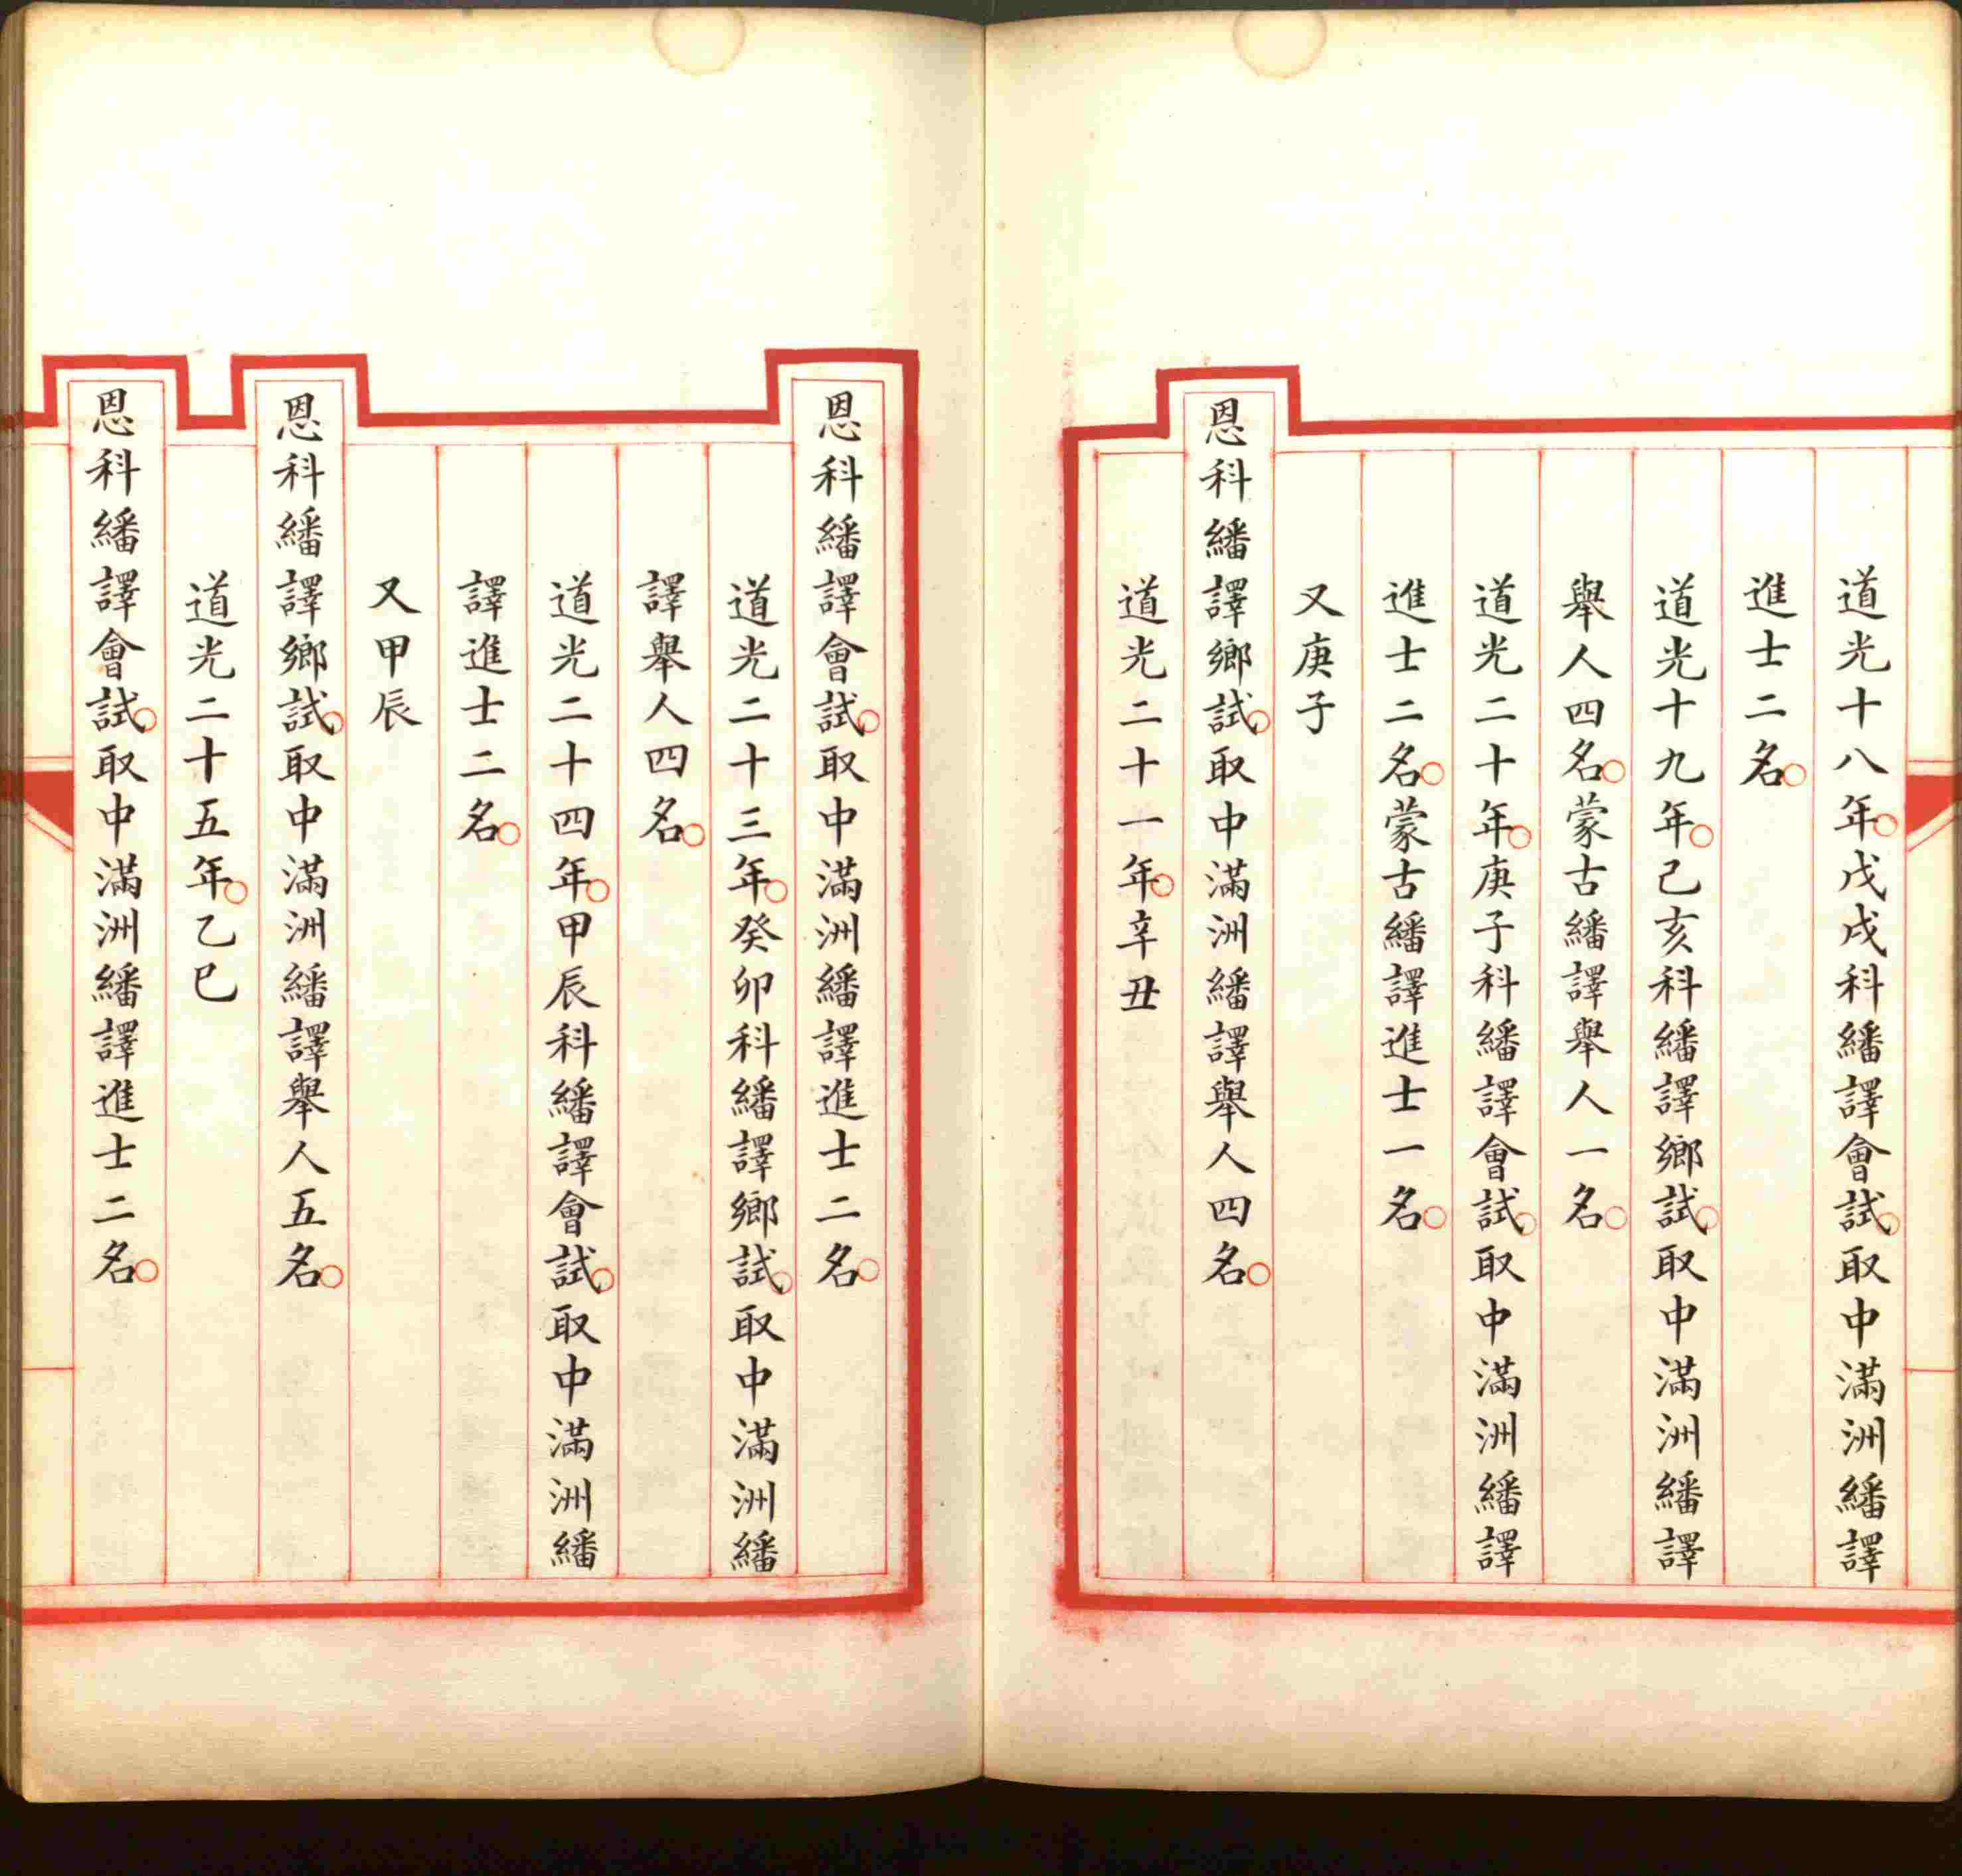 道光十八年○戊戌科繙譯會試○取中滿洲繙譯
進士二名○
道光十九年○己亥科繙譯鄉試○取中滿洲繙譯
舉人四名○蒙古繙譯舉人一名○
道光二十年○庚子科繙譯會試○取中滿洲繙譯
進士二名○蒙古繙譯進士一名○
又庚子
恩科繙譯鄉試○取中滿洲繙譯舉人四名○
道光二十一年○辛丑
恩科繙譯會試○取中滿洲繙譯進士二名○
道光二十三年○癸卯科繙譯鄉試○取中滿洲繙
譯舉人四名○
道光二十四年○甲辰科繙譯會試○取中滿洲繙
譯進士二名○
又甲辰
恩科繙譯鄉試○取中滿洲繙譯舉人五名○
道光二十五年○乙巳
恩科繙譯會試○取中滿洲繙譯進士二名○